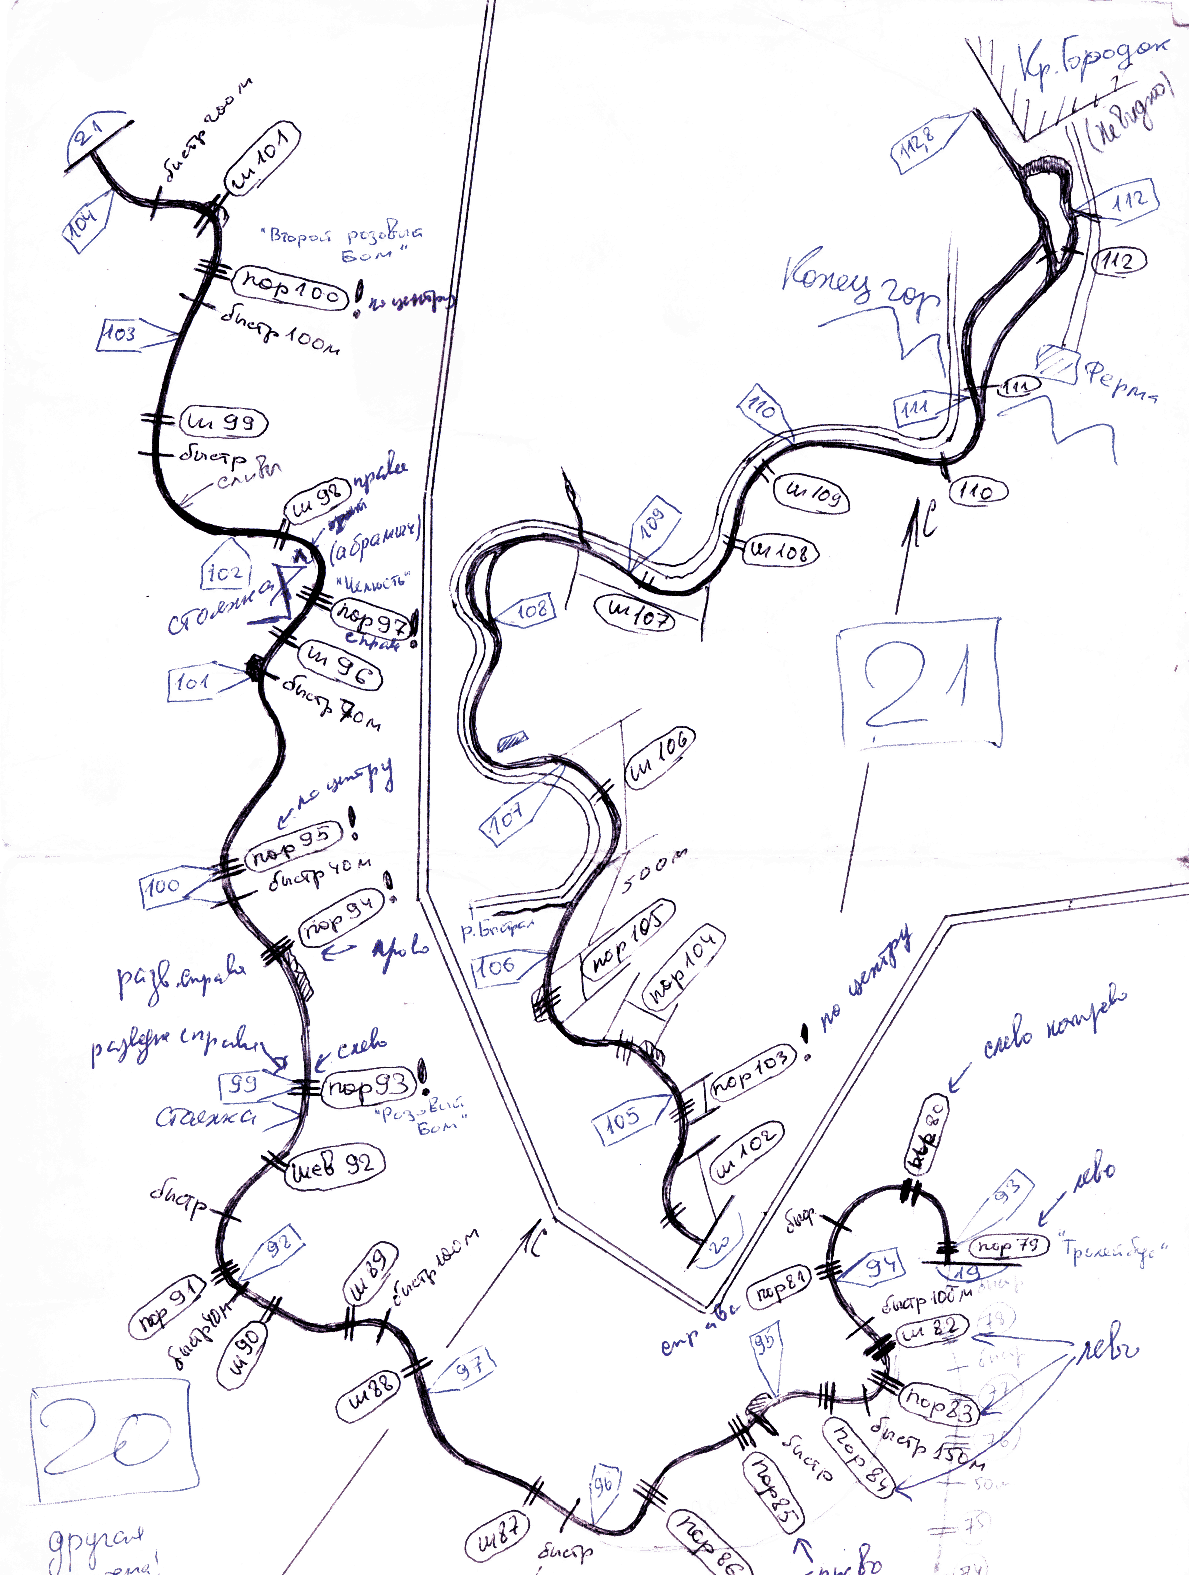 21
быстр 200м
ш 101
104
"Второй розовый
Бом"
пор 100 ! по центру
быстр 100м
103
ш 99
быстр
сливы
ш 98 правы
(абрамыч)
102
стоянка
"Челюсть"
пор 97 !
справа
ш 96
101
быстр 70м
по центру
пор 95 !
быстр 40м
100
пор 94 !
право
разв. справа
разведка справа
слево
99
пор 93 !
стоянка
"Розовый
Бом"
шев 92
быстр
98
пор 91
быстр 40м
ш 90
ш 89
быстр 100м
ш 88
97
С
20
другая
ш 87
быстр
96
пор 86
пор 85
быстр
95
справа
пор 84
быстр 150м
пор 83
ш 82
лево
быстр 100м
94
пор 81
быстр
пор 80
слево направо
93
пор 79
лево
"Тролейбус"
19
быстр
50м
75
Кр. Городок
(не видно)
112,8
112
112
Конец гор
Ферма
111
111
110
110
ш 109
ш 108
109
ш 107
108
С
21
ш 106
107
500м
пор 105
106
пор 104
пор 103 ! по центру
105
ш 102
20